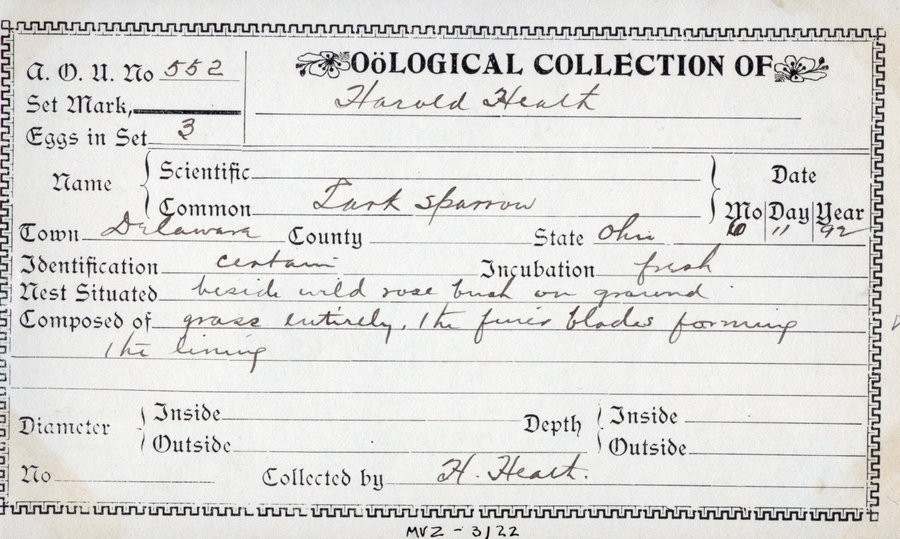 A. O. U. No 552
OöLOGICAL COLLECTION OF
Set Mark,
Harold Heath
Eggs in Set 3
Name
Scientific
Common Lark sparrow
Date
Mo Day Year
6 11 92
Town Delaware County State Ohio
Identification certain Incubation fresh
Nest Situated beside wild rose bush on ground
Composed of grass entirely, the finer blades forming
the lining
Diameter
Inside
Outside
Depth
Inside
Outside
No Collected by H. Heath.
MVZ - 3122